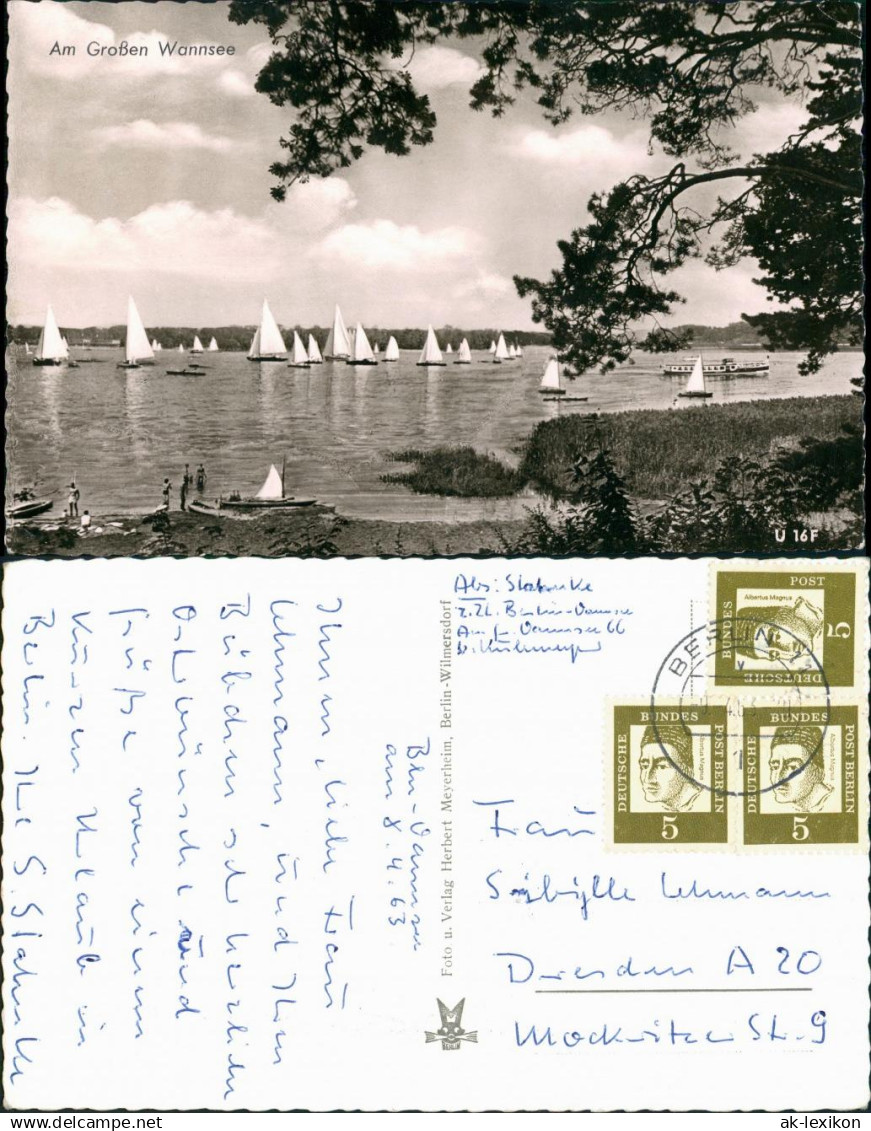 Am Großen Wannsee
U 16F
Abs: Stahnke
z. Zt. Berlin-Wannsee
Am Gr. Wannsee 66
b. Kirchmeyer
Bln-Wannsee
am 8.4.63
Ihnen, liebe Frau
Lehmann, und Ihren
Bübchen sehr herzliche
Osterwünsche und
Grüße von einem
kurzen Urlaub in
Berlin. Ihre S. Stahnke
Foto u. Verlag Herbert Meyerheim, Berlin-Wilmersdorf
DEUTSCHE BUNDES POST
Albertus Magnus
5
BERLIN
DEUTSCHE BUNDES POST BERLIN
Albertus Magnus
5
DEUTSCHE BUNDES POST BERLIN
Albertus Magnus
5
Frau
Sybylle Lehmann
Dresden A 20
Mockritzer Str. 9
ak-lexikon